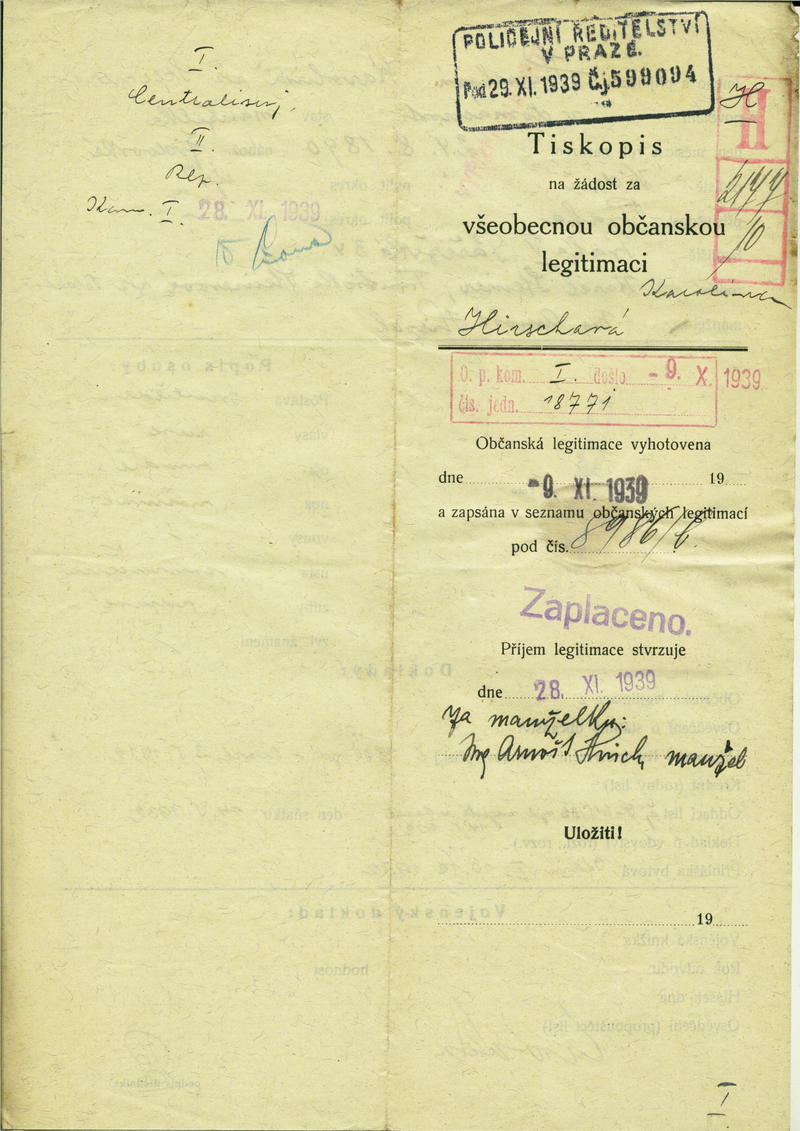 I.
Centralisuj.
II.
Rep.
Kom. I. 28. XI. 1939
POLICEJNÍ ŘEDITELSTVÍ
V PRAZE.
Pod 29. XI. 1939 Čj. 599094
H
II
2177
10
Tiskopis
na žádost za
všeobecnou občanskou
legitimaci
Karolina
Hirschová
O. p. kom. I. došlo - 9. X. 1939
čís. jedn. 18771
Občanská legitimace vyhotovena
dne -9. XI. 1939 19
a zapsána v seznamu občanských legitimací
pod čís. 8986/6.
Zaplaceno.
Příjem legitimace stvrzuje
dne 28. XI. 1939
Za manželku:
Ing Arnošt Hirsch, manžel
Uložiti!
19
I